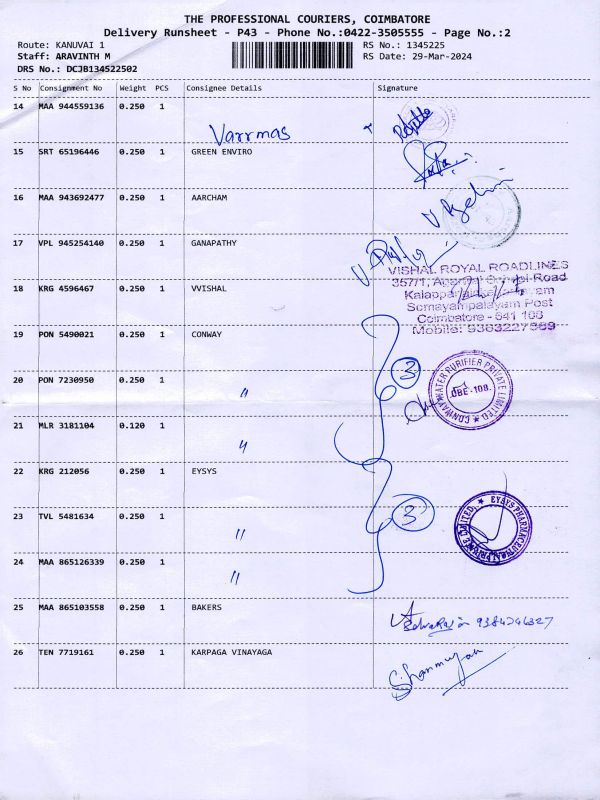 THE PROFESSIONAL COURIERS, COIMBATORE
Delivery Runsheet - P43 - Phone No.:0422-3505555 - Page No.:2
Route: KANUVAI 1 RS No.: 1345225
Staff: ARAVINTH M RS Date: 29-Mar-2024
DRS No.: DCJB134522502
S No Consignment No Weight PCS Consignee Details Signature
14 MAA 944559136 0.250 1
Varrmas
15 SRT 65196446 0.250 1 GREEN ENVIRO
16 MAA 943692477 0.250 1 AARCHAM
17 VPL 945254140 0.250 1 GANAPATHY
18 KRG 4596467 0.250 1 VVISHAL
VISHAL ROYAL ROADLINES
357/1, School Road
Somayampalayam Post
Coimbatore - 641 108
Mobile: 9363227569
19 PON 5490021 0.250 1 CONWAY
20 PON 7230950 0.250 1 〃 3
CONWAY WATER PURIFIER PRIVATE LIMITED
CBE-108.
21 MLR 3181104 0.120 1 〃
22 KRG 212056 0.250 1 EYSYS
23 TVL 5481634 0.250 1 〃 3
EYSYS PHARMACEUTICAL PRIVATE LIMITED
24 MAA 865126339 0.250 1 〃
25 MAA 865103558 0.250 1 BAKERS
26 TEN 7719161 0.250 1 KARPAGA VINAYAGA
Shanmugan